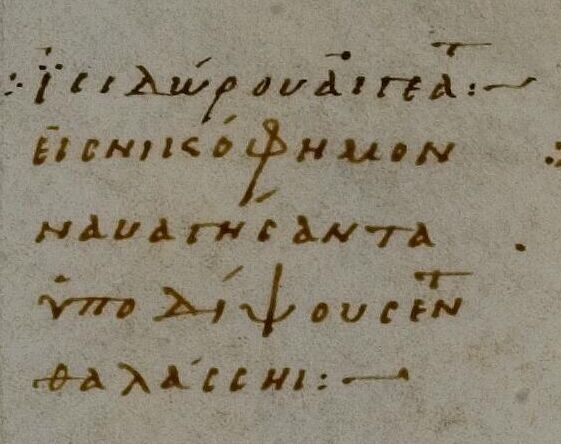 :ἰϊσιδώρου ἀιγεάτ:—
εισ νικόφημον
ναυαγήσαντα
ὑπο δίψουσ ἐν τ
θαλάσσηι:—